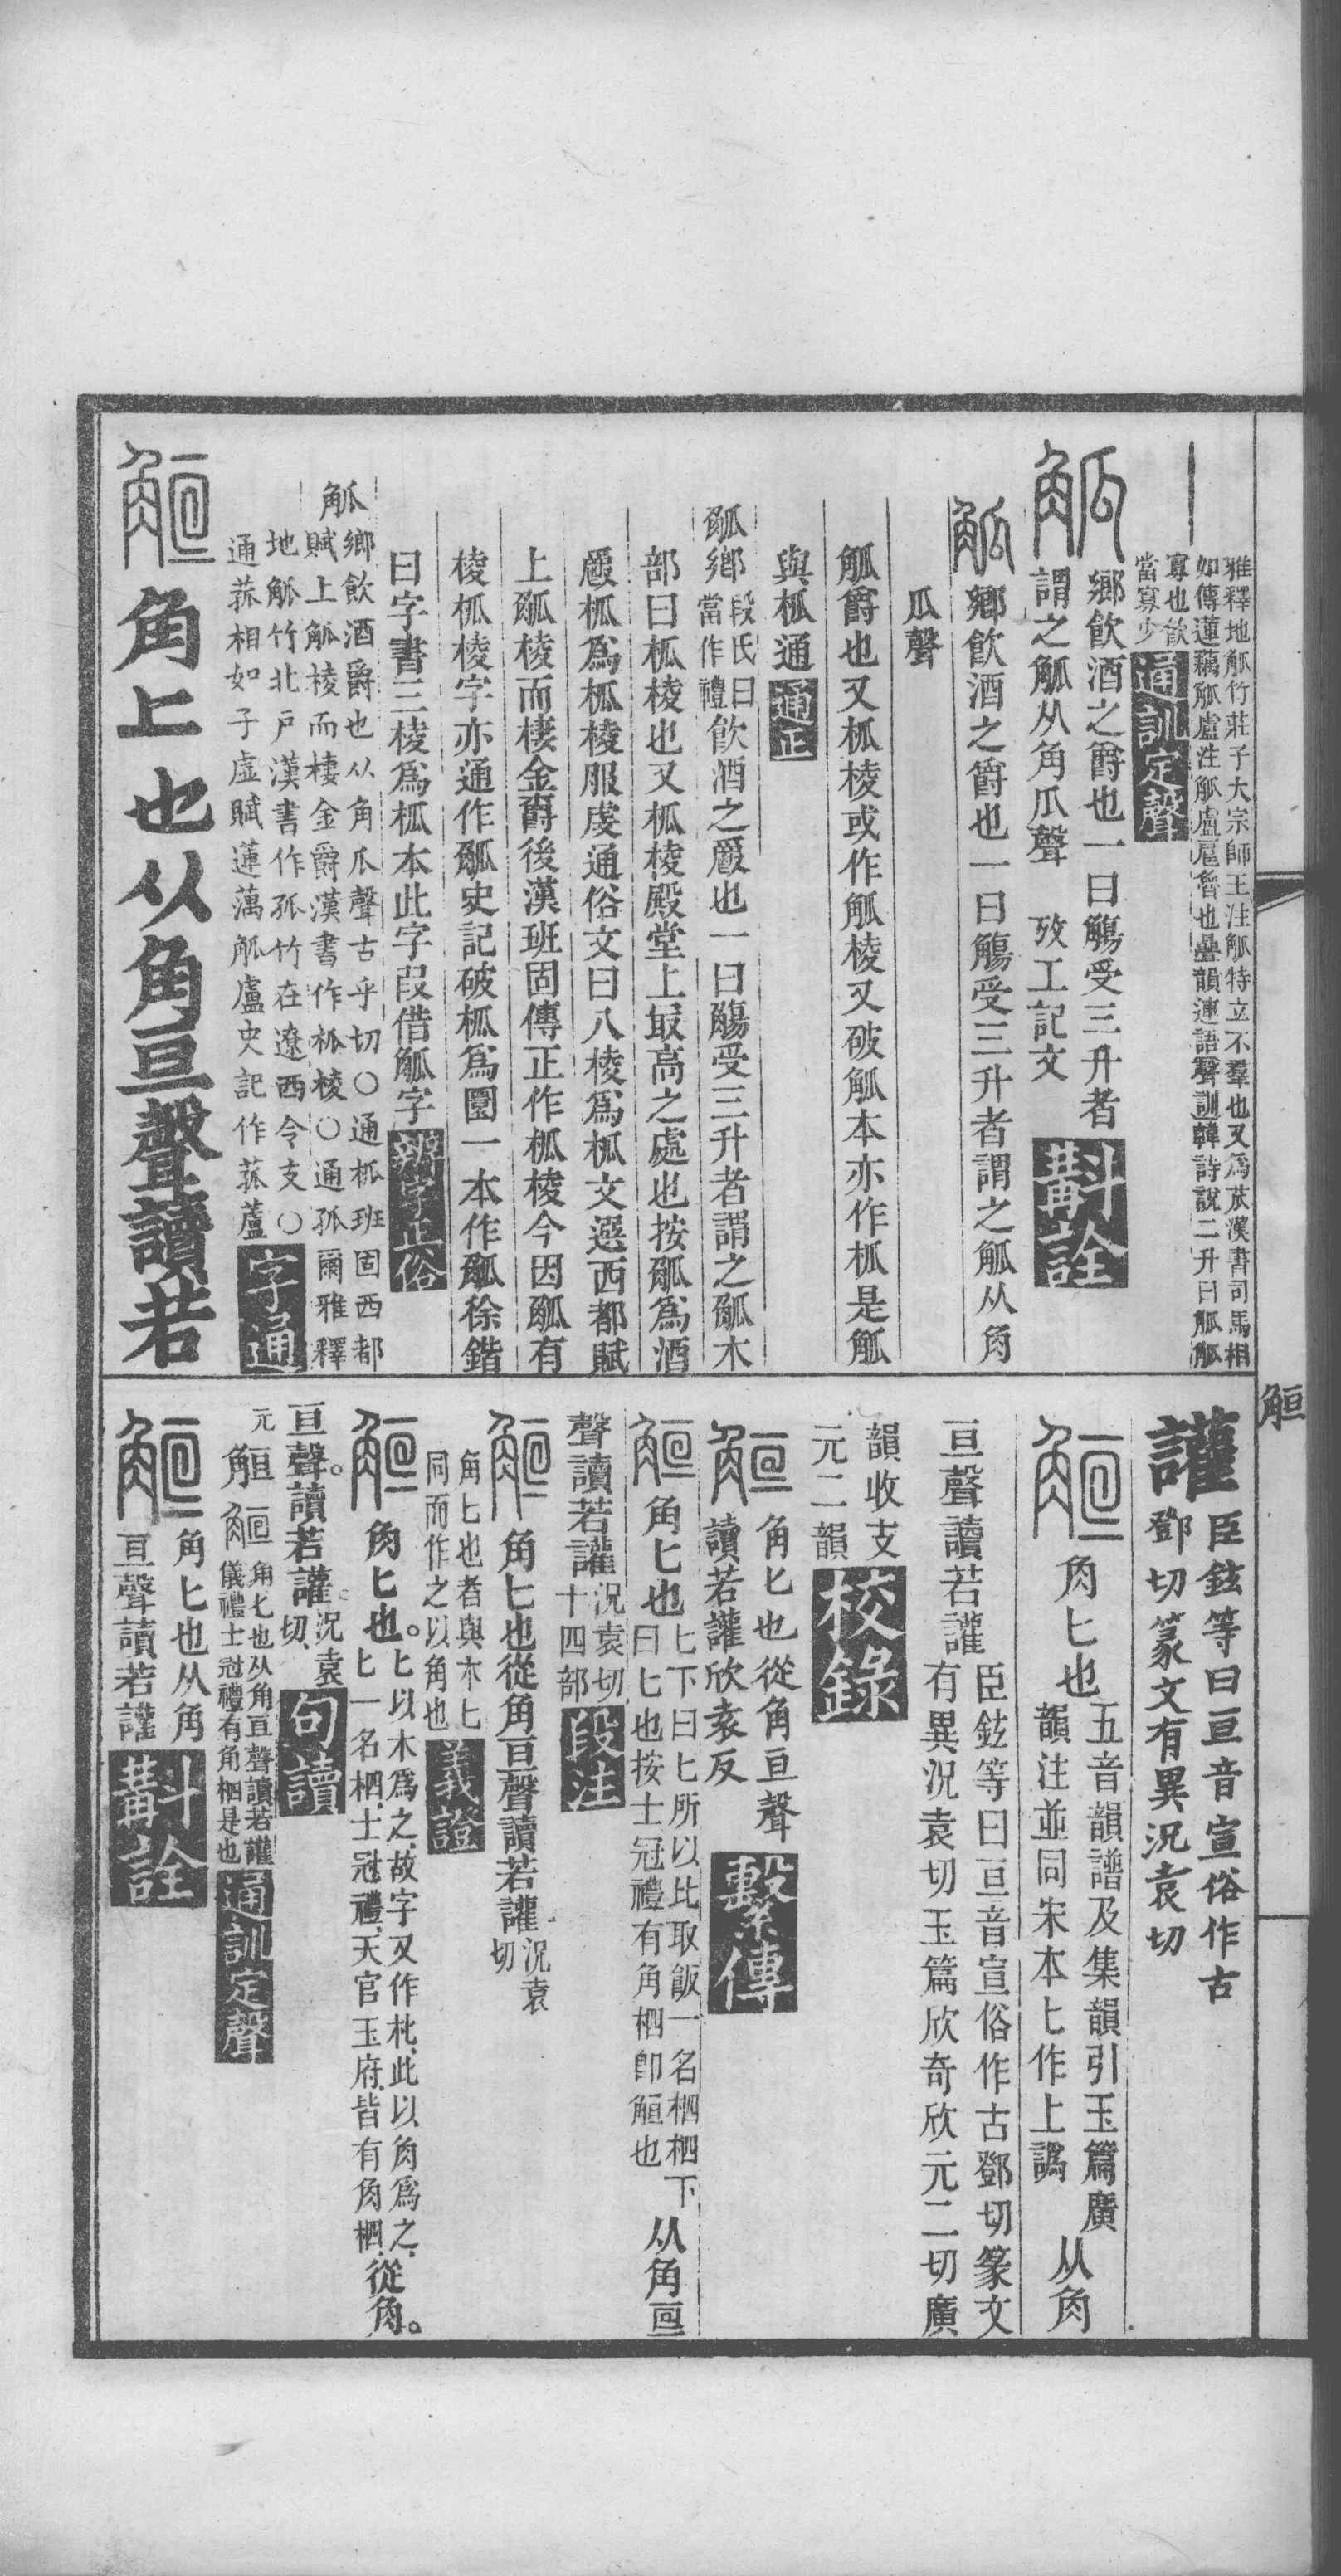 雅釋地觚竹莊子大宗師王注觚特立不羣也又爲苽漢書司馬相
如傳蓮藕觚盧注觚盧扈魯也疊韻連語聲訓韓詩說二升曰觚觚
寡也飲
當寡少
通訓定聲
鄉飲酒之爵也一曰觴受三升者
謂之觚从角瓜聲 攷工記文
斠詮
鄉飲酒之爵也一曰觴受三升者謂之觚从角
瓜聲
觚爵也又柧棱或作觚棱又破觚本亦作柧是觚
與柧通
通正
觚鄉
段氏曰
當作禮
飲酒之爵也一曰觴受三升者謂之觚木
部曰柧棱也又柧棱殿堂上最高之處也按觚爲酒
爵柧爲柧棱服虔通俗文曰八棱爲柧文選西都賦
上觚棱而棲金爵後漢班固傳正作柧棱今因觚有
棱柧棱字亦通作觚史記破柧爲圜一本作觚徐鍇
曰字書三棱爲柧本此字叚借觚字
辯字正俗
觚
鄉飲酒爵也从角瓜聲古乎切○通柧班固西都
賦上觚棱而棲金爵漢書作柧棱○通孤爾雅釋
地觚竹北戶漢書作孤竹在遼西令支○
通菰相如子虛賦蓮藕觚盧史記作菰蘆
字通
觛角上也从角亘聲讀若
觛
讙
臣鉉等曰亘音宣俗作古
鄧切篆文有異況袁切
角匕也
五音韻譜及集韻引玉篇廣
韻注並同宋本匕作上譌
从角
亘聲讀若讙
臣鉉等曰亘音宣俗作古鄧切篆文
有異況袁切玉篇欣奇欣元二切廣
韻收支
元二韻
校錄
角匕也從角亘聲
讀若讙欣袁反
繫傳
角匕也
匕下曰匕所以比取飯一名柶柶下
曰匕也按士冠禮有角柶卽觛也
从角亘
聲讀若讙
況袁切
十四部
段注
角匕也從角亘聲讀若讙
況袁
切
角匕也者與木匕
同而作之以角也
義證
角匕也。
匕以木爲之、故字又作朼、此以角爲之、
匕一名柶、士冠禮、天官玉府、皆有角柶、
從角。
亘聲。讀若讙
況袁
切、
句讀
元
觛
角匕也从角亘聲讀若讙
儀禮士冠禮有角柶是也
通訓定聲
角匕也从角
亘聲讀若讙
斠詮